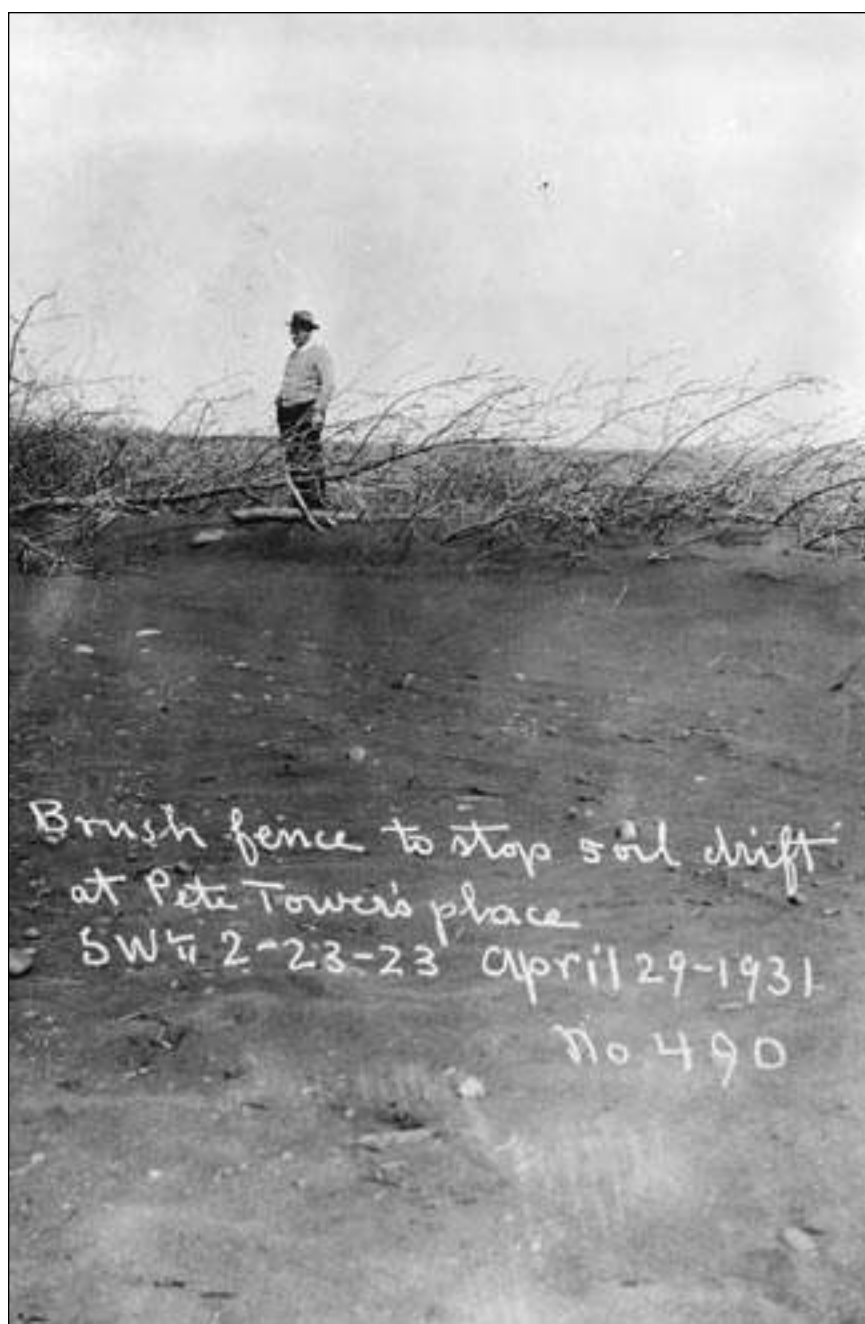 Brush fence to stop soil drift
at Pete Tower's place
SW¼ 2-23-23 April 29-1931
No 490